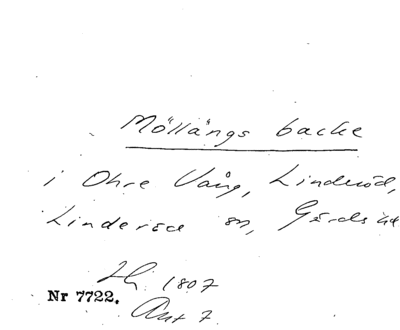 Möllängs backe
i Ohre Vång, Linderöd,
Linderöd sn, Gärds hd
Lh. 1807
Nr 7722.
Akt 7